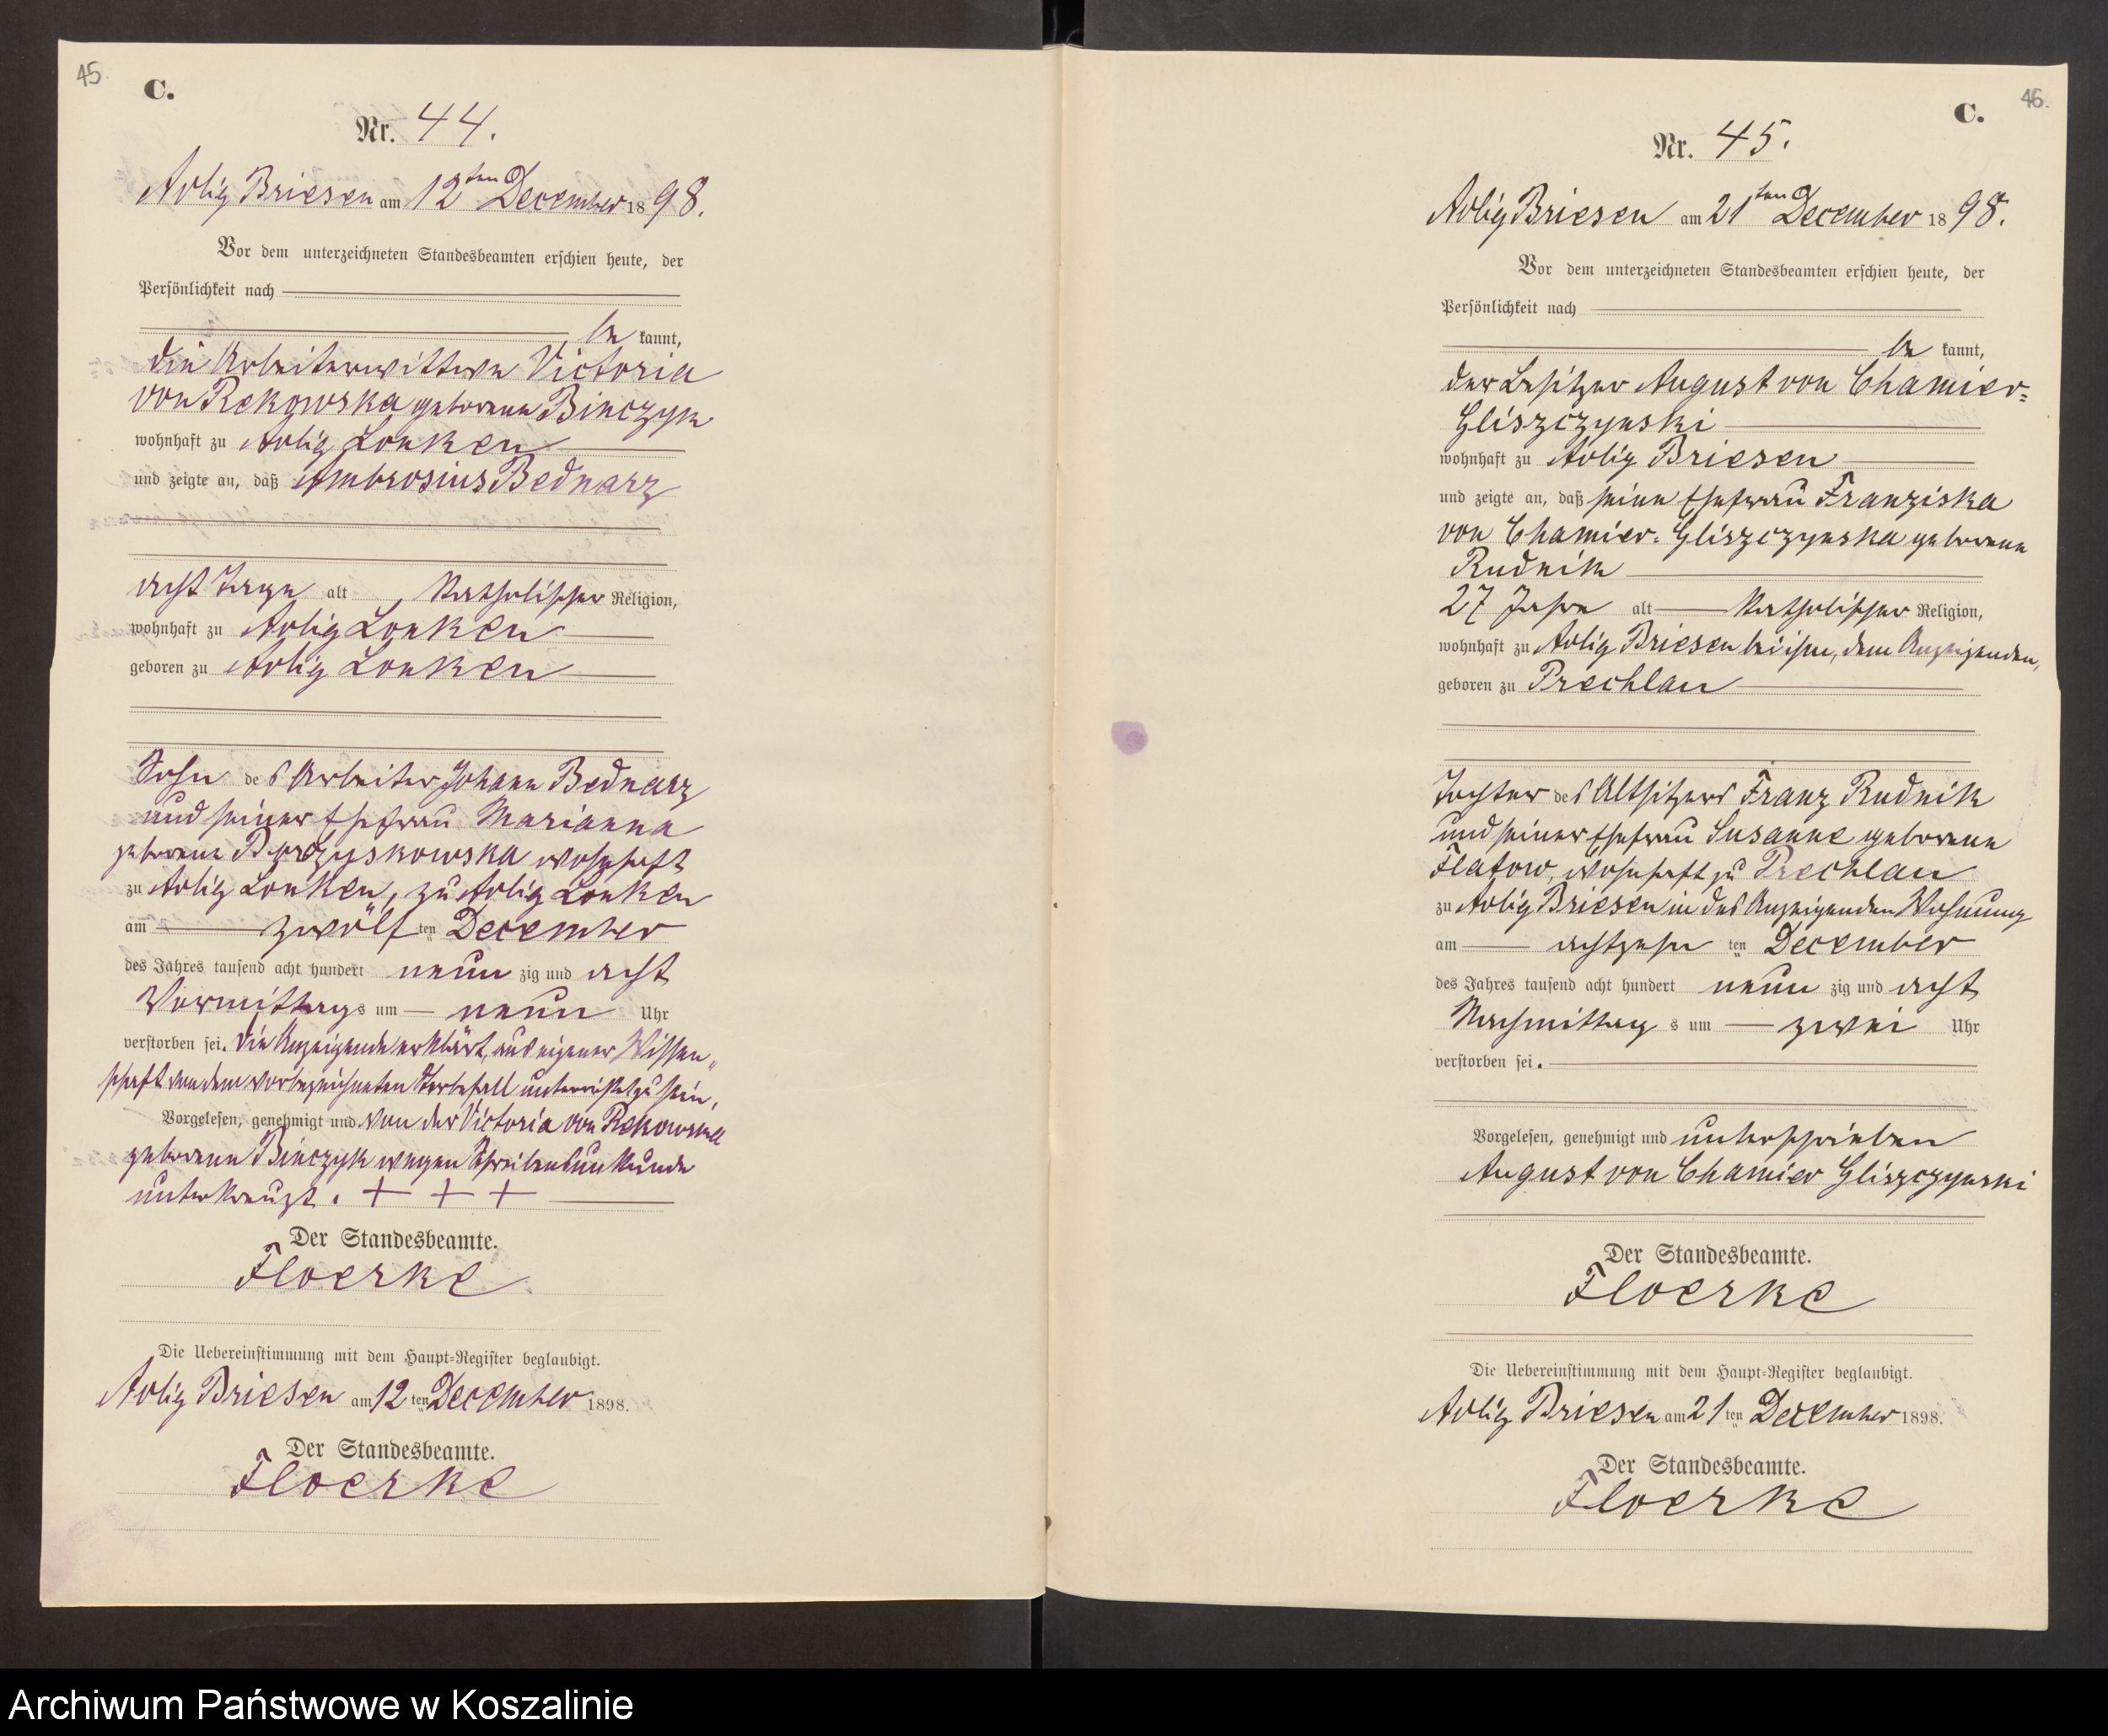 45.
C.
Nr. 44.
Adlig Briesen am 12ten December 1898.
Vor dem unterzeichneten Standesbeamten erschien heute, der
Persönlichkeit nach
be kannt,
die Arbeiterwittwe Victoria
von Rekowska geborene Binczyk
wohnhaft zu Adlig Lonken
und zeigte an, daß Ambrosius Bednarz
acht Tage alt, katholischer Religion,
wohnhaft zu Adlig Lonken
geboren zu Adlig Lonken
Sohn des Arbeiter Johann Bednarz
und seiner Ehefrau Marianna
geborene Borzyskowska wohnhaft
zu Adlig Lonken, zu Adlig Lonken
am zwölf ten December
des Jahres tausend acht hundert neun zig und acht
Vormittags um neun Uhr
verstorben sei. Die Anzeigende erklärt, aus eigener Wissen„
schaft von dem vorbezeichneten Sterbefall unterrichtet zu sein.
Vorgelesen, genehmigt und von der Victoria von Rekowska
geborene Binczyk wegen Schreibensunkunde
unterkreuzt. + + +
Der Standesbeamte.
Floerke
Die Uebereinstimmung mit dem Haupt-Register beglaubigt.
Adlig Briesen am 12 ten December 1898.
Der Standesbeamte.
Floerke
46.
C.
Nr. 45.
Adlig Briesen am 21ten December 1898.
Vor dem unterzeichneten Standesbeamten erschien heute, der
Persönlichkeit nach
be kannt,
der Besitzer August von Chamier-
Gliszczynski
wohnhaft zu Adlig Briesen
und zeigte an, daß seine Ehefrau Franziska
von Chamier-Gliszczynska geborene
Rudnik
27 Jahre alt katholischer Religion,
wohnhaft zu Adlig Briesen bei ihm, dem Anzeigenden,
geboren zu Prechlau
Tochter des Altsitzers Franz Rudnik
und seiner Ehefrau Susanne geborene
Flatow, wohnhaft zu Prechlau
zu Adlig Briesen in des Anzeigenden Wohnung
am achtzehn ten December
des Jahres tausend acht hundert neun zig und acht
Nachmittag s um zwei Uhr
verstorben sei.
Vorgelesen, genehmigt und unterschrieben
August von Chamier Gliszczynski
Der Standesbeamte.
Floerke
Die Uebereinstimmung mit dem Haupt-Register beglaubigt.
Adlig Briesen am 21 ten December 1898.
Der Standesbeamte.
Floerke
Archiwum Państwowe w Koszalinie